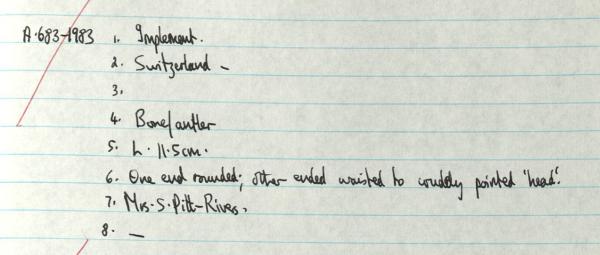 A.683-1983 1. Implement.
2. Switzerland –
3.
4. Bone/antler
5. L. 11.5cm.
6. One end rounded; other ended waisted to cruddly pointed 'head'.
7. Mrs. S. Pitt-Rivers.
8. —